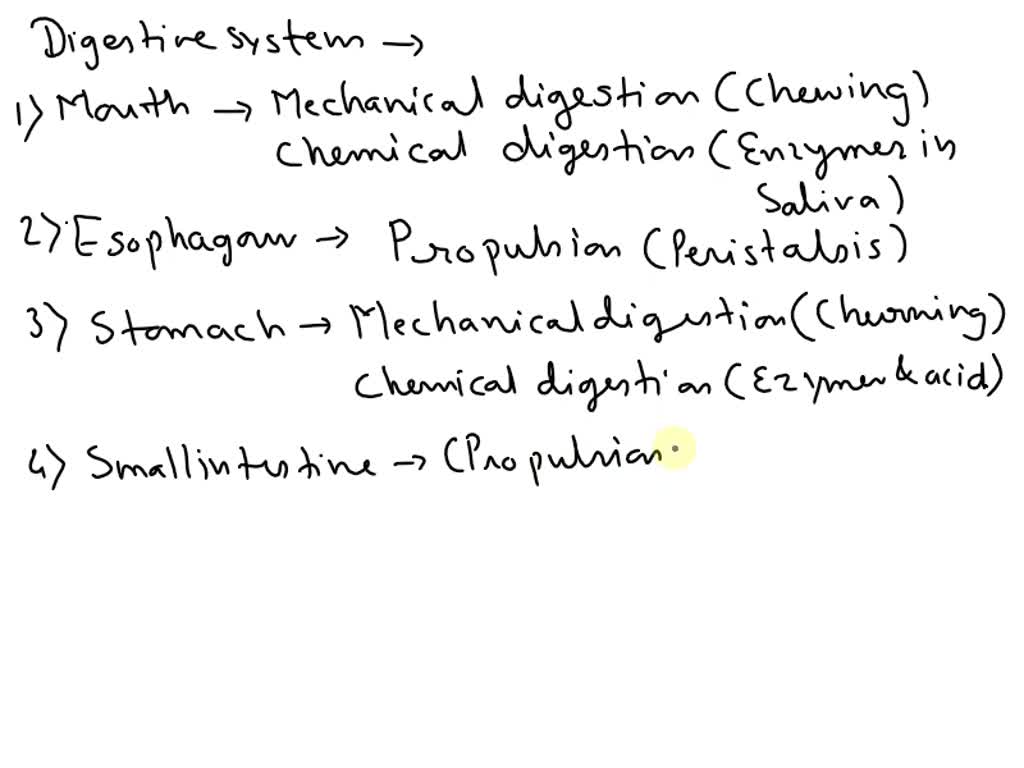 Digestive system →
1) Mouth → Mechanical digestion (Chewing)
Chemical digestion (Enzymes in
Saliva)
2) Esophagous → Propulsion (Peristalsis)
3) Stomach → Mechanical digestion (Churning)
Chemical digestion (Ezymes & acid)
4) Small intestine → (Propulsion